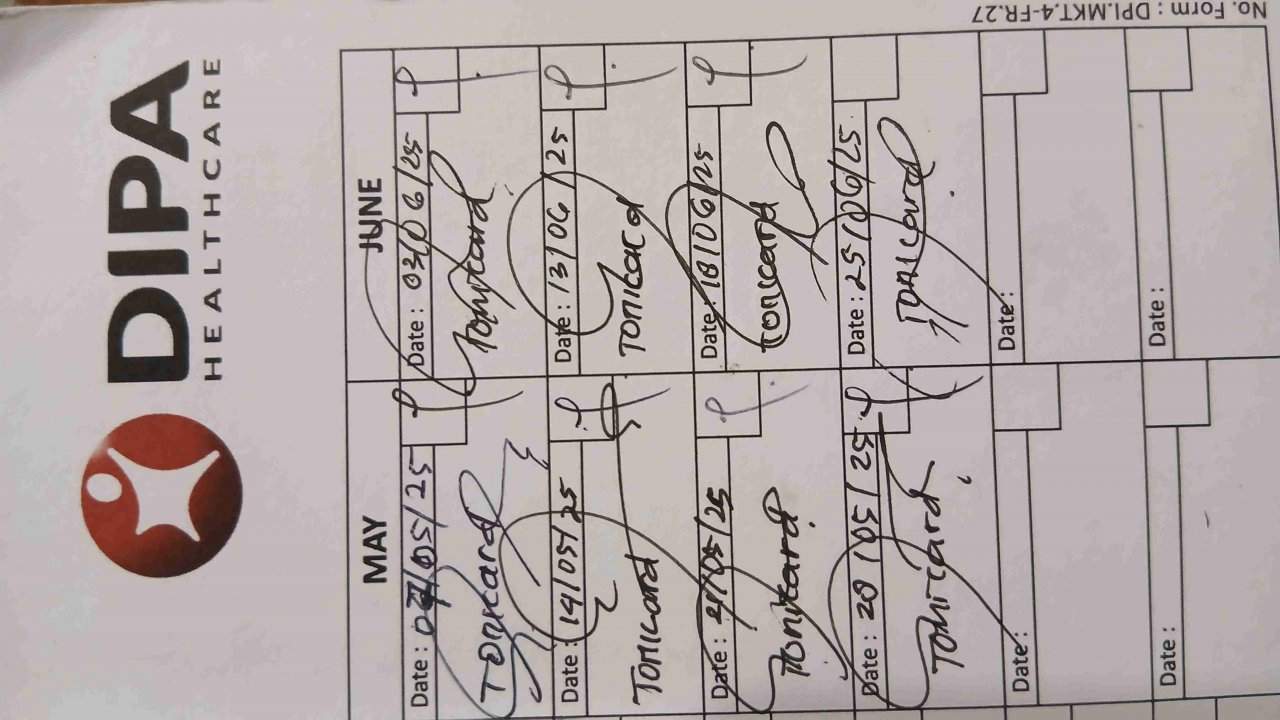 DIPA
HEALTHCARE
No. Form : DPI.MKT.4-FR.27
MAY
JUNE
Date : 07/05/25
Tonicard
Date : 03/06/25
Tonicard
Date : 14/05/25
Tonicard
Date : 13/06/25
Tonicard
Date : 21/05/25
Tonicard
Date : 18/06/25
Tonicard
Date : 28/05/25
Tonicard
Date : 25/06/25
Tonicard
Date :
Date :
Date :
Date :